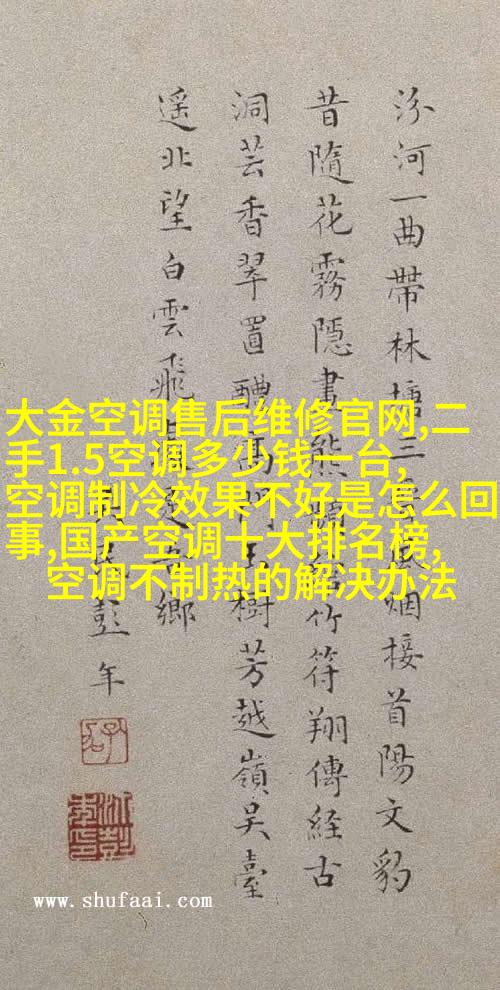 汾河一曲帶林塘三烟接首陽文豹
昔隨花霧隱畫熊竹符翔傳経古
洞芸香翠置醴樹芳越嶺吳臺
遥北望白雲飛鄉
彭年
大金空调售后维修官网,二
手1.5空调多少钱一台,
空调制冷效果不好是怎么回
事,国产空调十大排名榜,
空调不制热的解决办法
www.shufaai.com